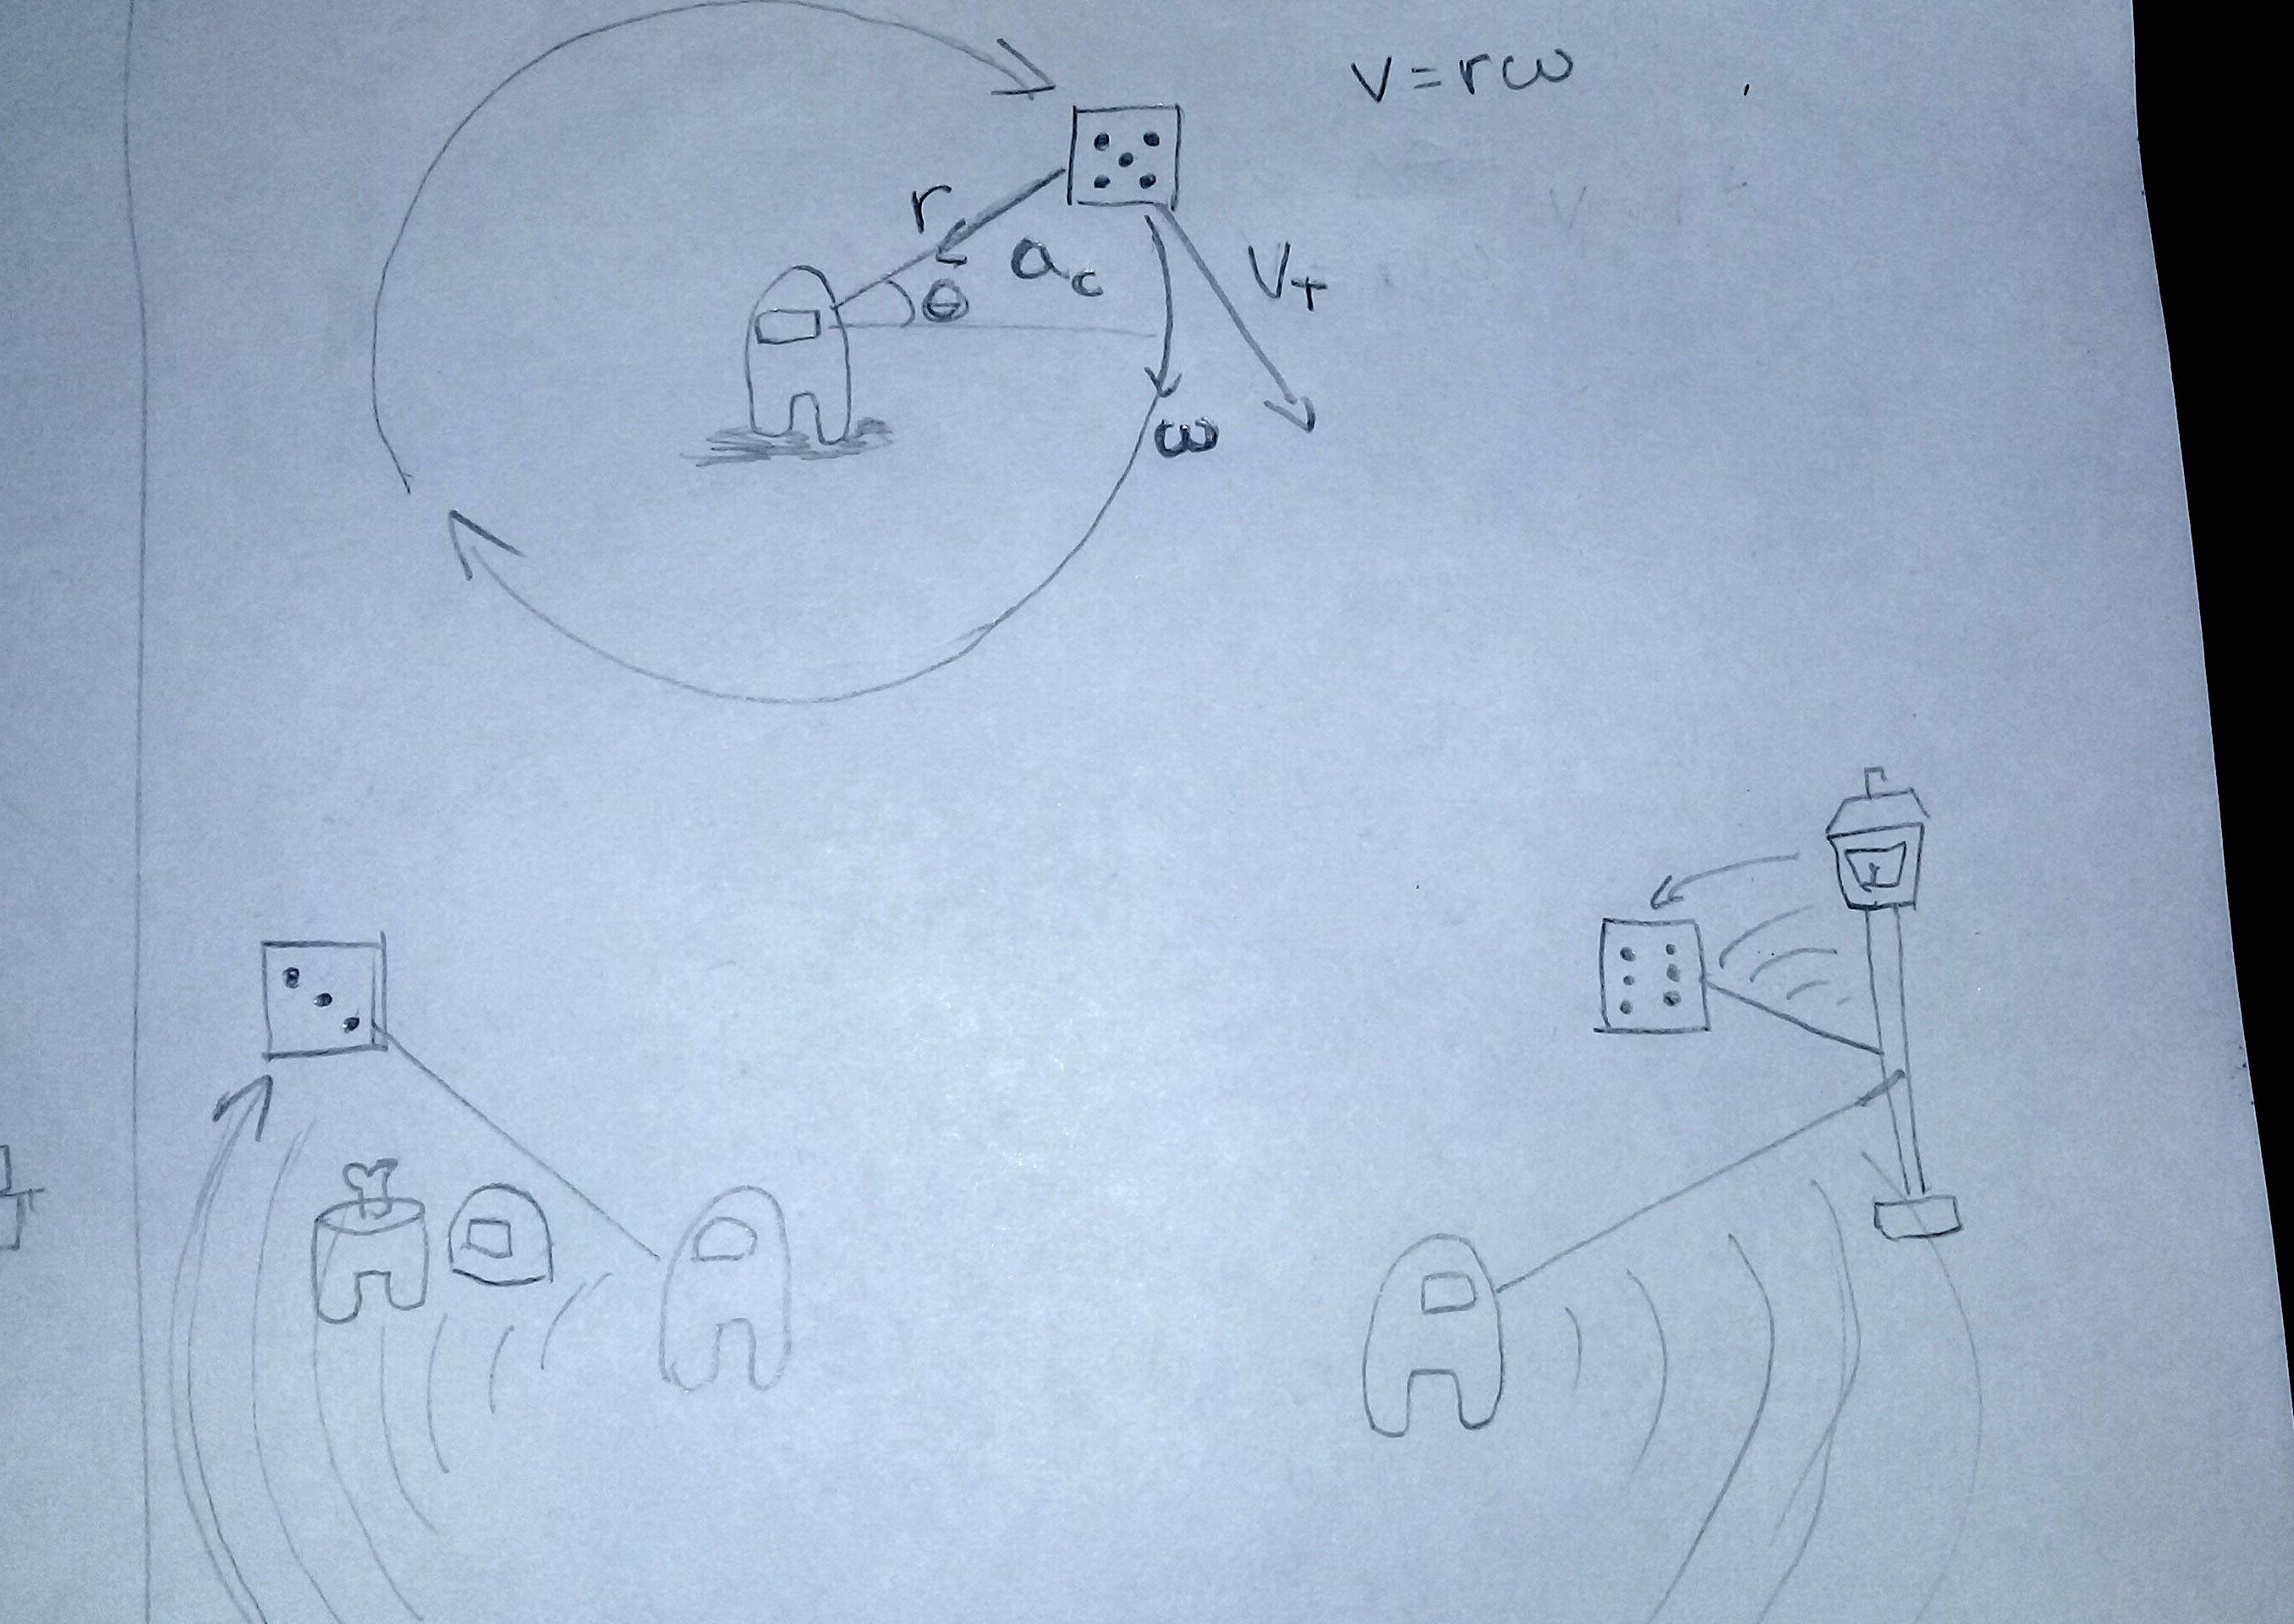 v=rω
r
a c
θ
V T
ω